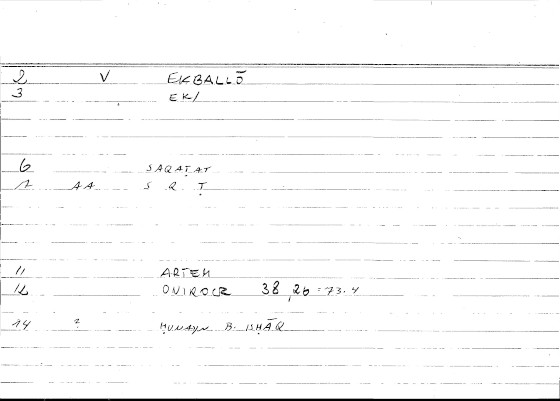 2 V EKBALLŌ
3 EK/
6 SAQAṬAT
7 AA S Q Ṭ
11 ARTEM
12 ONIROCR 38, 26 = 73.4
14 ? ḤUNAYN B. ISḤĀQ